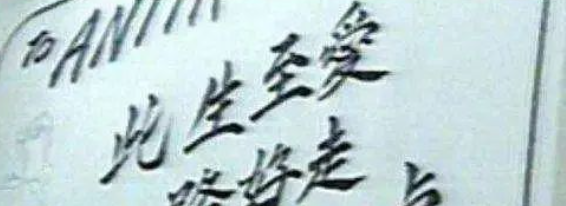 To ANITA
此生至愛
路好走